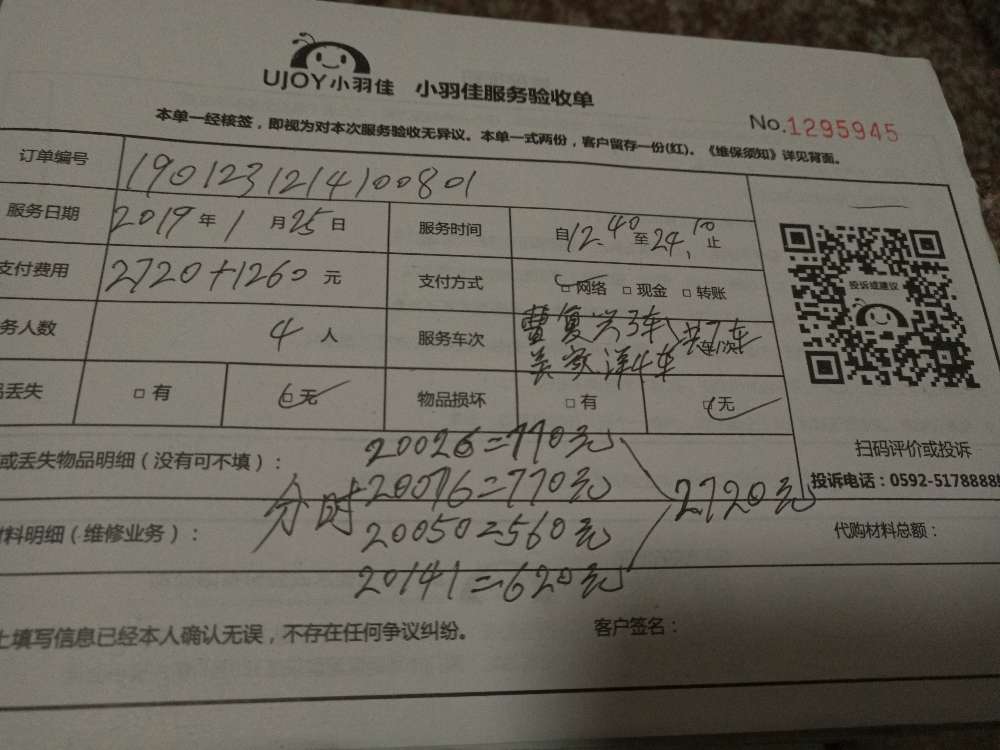 UJOY小羽佳 小羽佳服务验收单
No.1295945
本单一经核签，即视为对本次服务验收无异议。本单一式两份，客户留存一份(红)。《维保须知》详见背面。
订单编号 1901231214100801
服务日期 2019年1月25日 服务时间 自12.40至24.10止
支付费用 2720+1260元 支付方式 □网络 □现金 □转账
务人数 4人 服务车次 曹复兴3车 共7车
洋4车
丢失 □有 □无 物品损坏 □有 □无
投诉或建议
扫码评价或投诉
投诉电话：0592-5178888
或丢失物品明细（没有可不填）： 20026=770元
分时 20076=770元 2720元
料明细（维修业务）： 20050=560元 代购材料总额：
20141=620元
上填写信息已经本人确认无误，不存在任何争议纠纷。 客户签名：